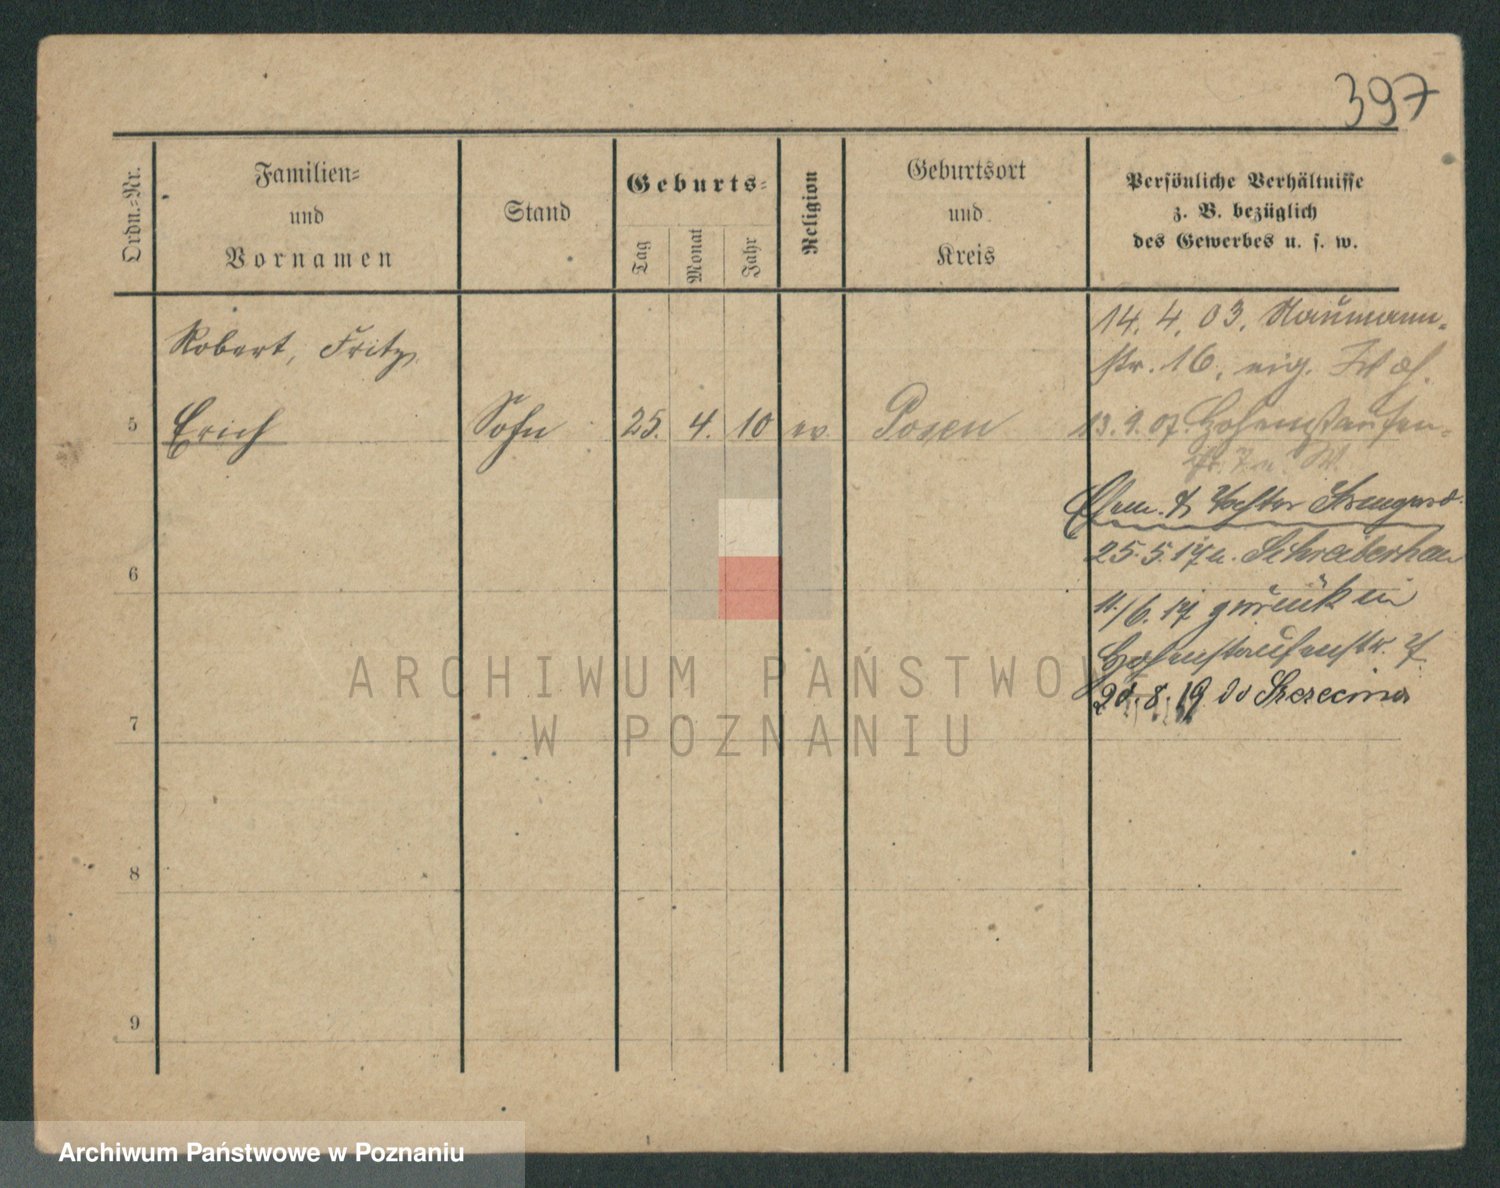 397
Ordn.=Nr.
Familien=
und
Vornamen
Stand
Geburts=
Tag
Monat
Jahr
Religion
Geburtsort
und
Kreis
Persönliche Verhältnisse
z. B. bezüglich
des Gewerbes u. s. w.
Robert, Fritz
5 Erich Sohn 25. 4. 10 ev. Posen
14. 4. 03. Naumann-
str. 16, eig.
13.9.07. Hohenstaufen-
Tochter Irmgard
25.5.17 n. Schreiberhau
11./6.17 zurück in
Hohenstaufenstr. 7
8.19 do Szczecina
6
7
8
9
ARCHIWUM PAŃSTWOWE
W POZNANIU
Archiwum Państwowe w Poznaniu